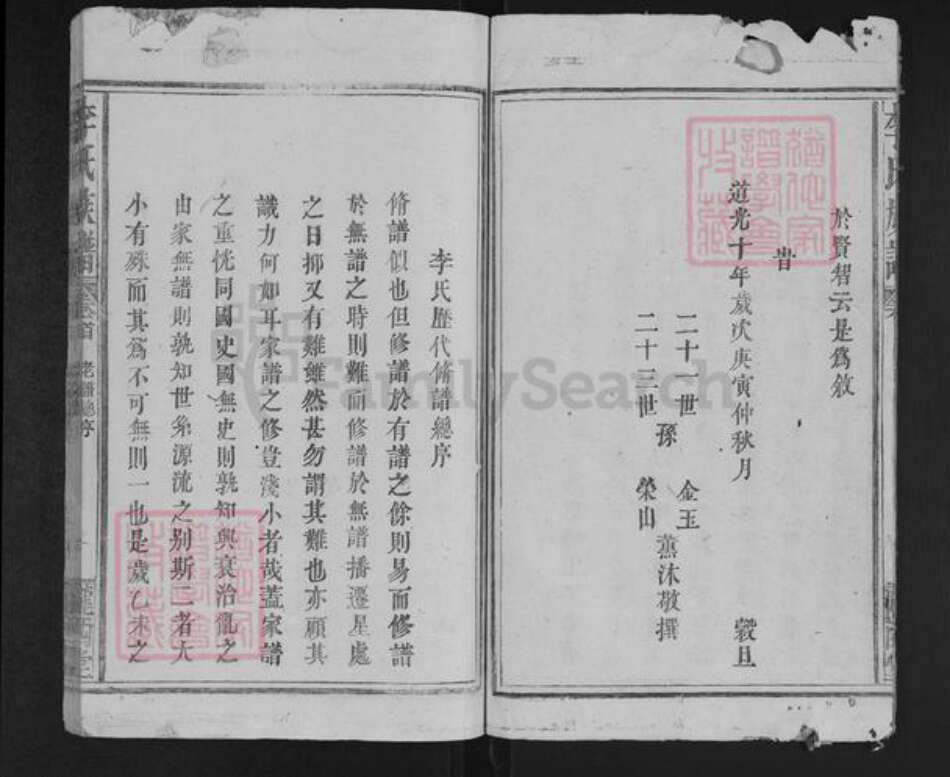 於賢智云是爲敘
旹
道光十年歲次庚寅仲秋月 穀旦
二十一世 金玉
孫 薰沐敬撰
二十三世 榮山
李氏歷代脩譜總序
脩譜似也但修譜於有譜之餘則易而修譜
於無譜之時則難而修譜於無譜播遷星處
之日抑又有難雖然甚勿謂其難也亦顧其
識力何如耳家譜之修豈淺小者哉蓋家譜
之重恍同國史國無史則孰知興衰治亂之
由家無譜則孰知世系源流之别斯二者大
小有殊而其爲不可無則一也是歲乙未之
李氏族譜
卷首
老譜總序
FamilySearch